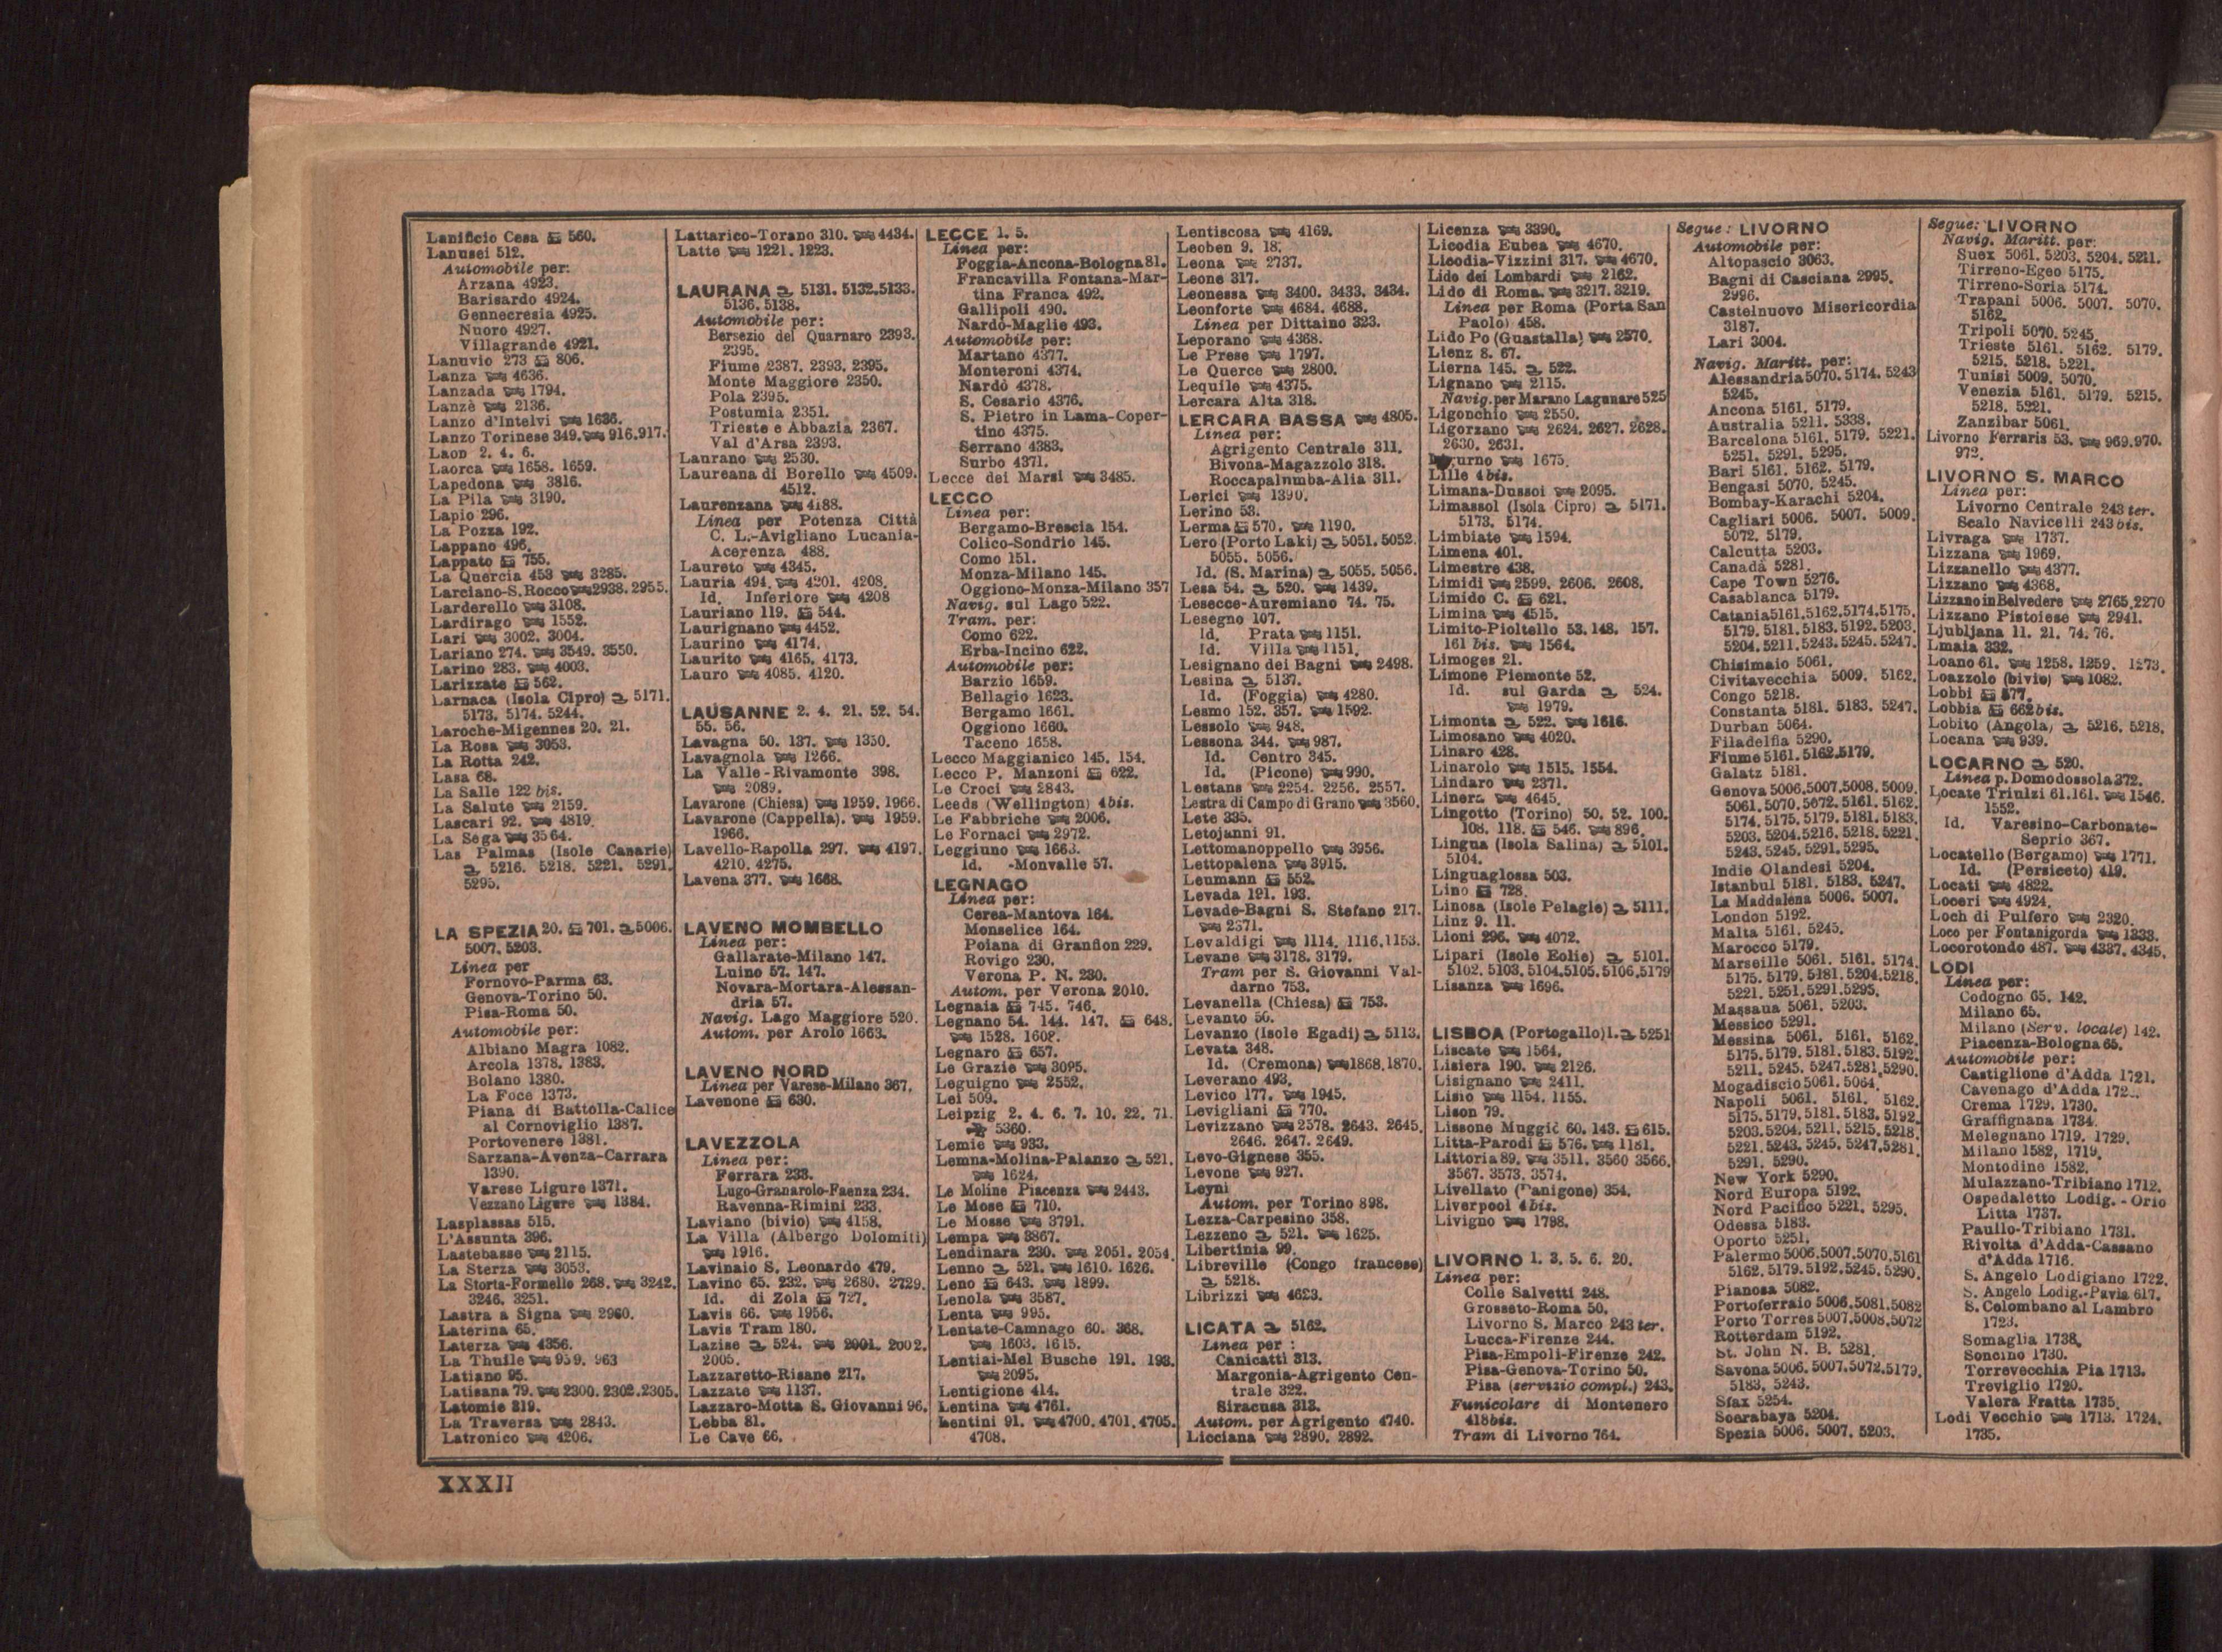 Lanificio Cesa 560.
Lanusei 512.
Automobile per:
Arzana 4923.
Barisardo 4924.
Gennecresia 4925.
Nuoro 4927.
Villagrande 4921.
Lanuvio 273 806.
Lanza 4636.
Lanzada 1794.
Lanzè 2136.
Lanzo d'Intelvi 1636.
Lanzo Torinese 349. 916.917.
Laon 2. 4. 6.
Laorca 1658. 1659.
Lapedona 3816.
La Pila 3190.
Lapio 296.
La Pozza 192.
Lappano 496.
Lappato 755.
La Quercia 453 3285.
Larciano-S. Rocco 2938. 2955.
Larderello 3108.
Lardirago 1552.
Lari 3002. 3004.
Lariano 274. 3549. 3550.
Larino 283. 4003.
Larizzate 562.
Larnaca (Isola Cipro) 5171.
5173. 5174. 5244.
Laroche-Migennes 20. 21.
La Rosa 3053.
La Rotta 242.
Lasa 68.
La Salle 122 bis.
La Salute 2159.
Lascari 92. 4819.
La Sega 3564.
Las Palmas (Isole Canarie)
5216. 5218. 5221. 5291.
5295.
LA SPEZIA 20. 701. 5006.
5007. 5203.
Linea per
Fornovo-Parma 63.
Genova-Torino 50.
Pisa-Roma 50.
Automobile per:
Albiano Magra 1082.
Arcola 1378. 1383.
Bolano 1380.
La Foce 1373.
Piana di Battolla-Calice
al Cornoviglio 1387.
Portovenere 1381.
Sarzana-Avenza-Carrara
1390.
Varese Ligure 1371.
Vezzano Ligure 1384.
Lasplassas 515.
L'Assunta 396.
Lastebasse 2115.
La Sterza 3053.
La Storta-Formello 268. 3242.
3246. 3251.
Lastra a Signa 2960.
Laterina 65.
Laterza 4356.
La Thuile 959. 963
Latiano 95.
Latisana 79. 2300. 2302. 2305.
Latomie 319.
La Traversa 2843.
Latronico 4206.
Lattarico-Torano 310. 4434.
Latte 1221. 1223.
LAURANA 5131. 5132. 5133.
5136. 5138.
Automobile per:
Bersezio del Quarnaro 2393.
2395.
Fiume 2387. 2393. 2395.
Monte Maggiore 2350.
Pola 2395.
Postumia 2351.
Trieste e Abbazia 2367.
Val d'Arsa 2393.
Laurano 2530.
Laureana di Borello 4509.
4512.
Laurenzana 4188.
Linea per Potenza Città
C. L.-Avigliano Lucania-
Acerenza 488.
Laureto 4345.
Lauria 494. 4201. 4208.
Id. Inferiore 4208
Lauriano 119. 544.
Laurignano 4452.
Laurino 4174.
Laurito 4165. 4173.
Lauro 4085. 4120.
LAUSANNE 2. 4. 21. 52. 54.
55. 56.
Lavagna 50. 137. 1350.
Lavagnola 1266.
La Valle-Rivamonte 398.
2089.
Lavarone (Chiesa) 1959. 1966.
Lavarone (Cappella). 1959.
1966.
Lavello-Rapolla 297. 4197.
4210. 4275.
Lavena 377. 1668.
LAVENO MOMBELLO
Linea per:
Gallarate-Milano 147.
Luino 57. 147.
Novara-Mortara-Alessan-
dria 57.
Navig. Lago Maggiore 520.
Autom. per Arolo 1663.
LAVENO NORD
Linea per Varese-Milano 367.
Lavenone 630.
LAVEZZOLA
Linea per:
Ferrara 233.
Lugo-Granarolo-Faenza 234.
Ravenna-Rimini 233.
Laviano (bivio) 4158.
La Villa (Albergo Dolomiti)
1916.
Lavinaio S. Leonardo 479.
Lavino 65. 232. 2680. 2729.
Id. di Zola 727.
Lavis 66. 1956.
Lavis Tram 180.
Lazise 524. 2001. 2002.
2005.
Lazzaretto-Risano 217.
Lazzate 1137.
Lazzaro-Motta S. Giovanni 96.
Lebba 81.
Le Cave 66.
LECCE 1. 5.
Linea per:
Foggia-Ancona-Bologna 81.
Francavilla Fontana-Mar-
tina Franca 492.
Gallipoli 490.
Nardò-Maglie 493.
Automobile per:
Martano 4377.
Monteroni 4374.
Nardò 4378.
S. Cesario 4376.
S. Pietro in Lama-Coper-
tino 4375.
Serrano 4383.
Surbo 4371.
Lecce dei Marsi 3485.
LECCO
Linea per:
Bergamo-Brescia 154.
Colico-Sondrio 145.
Como 151.
Monza-Milano 145.
Oggiono-Monza-Milano 357
Navig. sul Lago 522.
Tram. per:
Como 622.
Erba-Incino 622.
Automobile per:
Barzio 1659.
Bellagio 1623.
Bergamo 1661.
Oggiono 1660.
Taceno 1658.
Lecco Maggianico 145. 154.
Lecco P. Manzoni 622.
Le Croci 2843.
Leeds (Wellington) 4bis.
Le Fabbriche 2006.
Le Fornaci 2972.
Leggiuno 1663.
Id. -Monvalle 57.
LEGNAGO
Linea per:
Cerea-Mantova 164.
Monselice 164.
Poiana di Granfion 229.
Rovigo 230.
Verona P. N. 230.
Autom. per Verona 2010.
Legnaia 745. 746.
Legnano 54. 144. 147. 648.
1528. 1602.
Legnaro 657.
Le Grazie 3095.
Leguigno 2552.
Lei 509.
Leipzig 2. 4. 6. 7. 10. 22. 71.
5360.
Lemie 933.
Lemna-Molina-Palanzo 521.
1624.
Le Moline Piacenza 2443.
Le Mose 710.
Le Mosse 3791.
Lempa 3867.
Lendinara 230. 2051. 2054.
Lenno 521. 1610. 1626.
Leno 643. 1899.
Lenola 3587.
Lenta 995.
Lentate-Camnago 60. 368.
1603. 1615.
Lentiai-Mel Busche 191. 193.
2095.
Lentigione 414.
Lentina 4761.
Lentini 91. 4700. 4701. 4705.
4708.
Lentiscosa 4169.
Leoben 9. 18.
Leona 2737.
Leone 317.
Leonessa 3400. 3433. 3434.
Leonforte 4684. 4688.
Linea per Dittaino 323.
Leporano 4368.
Le Prese 1797.
Le Querce 2800.
Lequile 4375.
Lercara Alta 318.
LERCARA BASSA 4805.
Linea per:
Agrigento Centrale 311.
Bivona-Magazzolo 318.
Roccapalumba-Alia 311.
Lerici 1390.
Lerino 53.
Lerma 570. 1190.
Lero (Porto Laki) 5051. 5052.
5055. 5056.
Id. (S. Marina) 5055. 5056.
Lesa 54. 520. 1439.
Lesecce-Auremiano 74. 75.
Lesegno 107.
Id. Prata 1151.
Id. Villa 1151.
Lesignano dei Bagni 2498.
Lesina 5137.
Id. (Foggia) 4280.
Lesmo 152. 357. 1592.
Lessolo 948.
Lessona 344. 987.
Id. Centro 345.
Id. (Picone) 990.
Lestans 2254. 2256. 2557.
Lestra di Campo di Grano 3560.
Lete 335.
Letojanni 91.
Lettomanoppello 3956.
Lettopalena 3915.
Leumann 552.
Levada 191. 193.
Levade-Bagni S. Stefano 217.
2371.
Levaldigi 1114. 1116. 1153.
Levane 3178. 3179.
Tram per S. Giovanni Val-
darno 753.
Levanella (Chiesa) 753.
Levanto 50.
Levanzo (Isole Egadi) 5113.
Levata 348.
Id. (Cremona) 1868. 1870.
Leverano 493.
Levico 177. 1945.
Levigliani 770.
Levizzano 2578. 2643. 2645.
2646. 2647. 2649.
Levo-Gignese 355.
Levone 927.
Leynì
Autom. per Torino 898.
Lezza-Carpesino 358.
Lezzeno 521. 1625.
Libertinia 99.
Libreville (Congo francese)
5218.
Librizzi 4623.
LICATA 5162.
Linea per :
Canicattì 313.
Margonia-Agrigento Cen-
trale 322.
Siracusa 313.
Autom. per Agrigento 4740.
Licciana 2890. 2892.
Licenza 3390.
Licodia Eubea 4670.
Licodia-Vizzini 317. 4670.
Lido dei Lombardi 2162.
Lido di Roma. 3217. 3219.
Linea per Roma (Porta San
Paolo) 458.
Lido Po (Guastalla) 2570.
Lienz 8. 67.
Lierna 145. 522.
Lignano 2115.
Navig. per Marano Lagunare 525
Ligonchio 2550.
Ligorzano 2624. 2627. 2628.
2630. 2631.
1675.
Lille 4bis.
Limana-Dussoi 2095.
Limassol (Isola Cipro) 5171.
5173. 5174.
Limbiate 1594.
Limena 401.
Limestre 438.
Limidi 2599. 2606. 2608.
Limido C. 621.
Limina 4515.
Limito-Pioltello 53. 148. 157.
161 bis. 1564.
Limoges 21.
Limone Piemonte 52.
Id. sul Garda 524.
1979.
Limonta 522. 1616.
Limosano 4020.
Linaro 428.
Linarolo 1515. 1554.
Lindaro 2371.
Linera 4645.
Lingotto (Torino) 50. 52. 100.
108. 118. 546. 896.
Lingua (Isola Salina) 5101.
5104.
Linguaglossa 503.
Lino 728.
Linosa (Isole Pelagie) 5111.
Linz 9. 11.
Lioni 296. 4072.
Lipari (Isole Eolie) 5101.
5102. 5103. 5104. 5105. 5106. 5179
Lisanza 1696.
LISBOA (Portogallo) 1. 5251
Liscate 1564.
Lisiera 190. 2126.
Lisignano 2411.
Lisio 1154. 1155.
Lison 79.
Lissone Muggiò 60. 143. 615.
Litta-Parodi 576. 1181.
Littoria 89. 3511. 3560 3566.
3567. 3573. 3574.
Livellato (Panigone) 354.
Liverpool 4bis.
Livigno 1798.
LIVORNO 1. 3. 5. 6. 20.
Linea per:
Colle Salvetti 248.
Grosseto-Roma 50.
Livorno S. Marco 243 ter.
Lucca-Firenze 244.
Pisa-Empoli-Firenze 242.
Pisa-Genova-Torino 50.
Pisa (servizio compl.) 243.
Funicolare di Montenero
418bis.
Tram di Livorno 764.
Segue: LIVORNO
Automobile per:
Altopascio 3063.
Bagni di Casciana 2995.
2996.
Castelnuovo Misericordia
3187.
Lari 3004.
Navig. Maritt. per:
Alessandria 5070. 5174. 5243
5245.
Ancona 5161. 5179.
Australia 5211. 5338.
Barcelona 5161. 5179. 5221.
5251. 5291. 5295.
Bari 5161. 5162. 5179.
Bengasi 5070. 5245.
Bombay-Karachi 5204.
Cagliari 5006. 5007. 5009.
5072. 5179.
Calcutta 5203.
Canadà 5281.
Cape Town 5276.
Casablanca 5179.
Catania 5161. 5162. 5174. 5175.
5179. 5181. 5183. 5192. 5203.
5204. 5211. 5243. 5245. 5247.
Chisimaio 5061.
Civitavecchia 5009. 5162.
Congo 5218.
Constanta 5181. 5183. 5247.
Durban 5064.
Filadelfia 5290.
Fiume 5161. 5162. 5179.
Galatz 5181.
Genova 5006. 5007. 5008. 5009.
5061. 5070. 5072. 5161. 5162.
5174. 5175. 5179. 5181. 5183.
5203. 5204. 5216. 5218. 5221.
5243. 5245. 5291. 5295.
Indie Olandesi 5204.
Istanbul 5181. 5183. 5247.
La Maddalena 5006. 5007.
London 5192.
Malta 5161. 5245.
Marocco 5179.
Marseille 5061. 5161. 5174.
5175. 5179. 5181. 5204. 5218.
5221. 5251. 5291. 5295.
Massaua 5061. 5203.
Messico 5291.
Messina 5061. 5161. 5162.
5175. 5179. 5181. 5183. 5192.
5211. 5245. 5247. 5281. 5290.
Mogadiscio 5061. 5064.
Napoli 5061. 5161. 5162.
5175. 5179. 5181. 5183. 5192.
5203. 5204. 5211. 5215. 5218.
5221. 5243. 5245. 5247. 5281.
5291. 5290.
New York 5290.
Nord Europa 5192.
Nord Pacifico 5221. 5295.
Odessa 5183.
Oporto 5251.
Palermo 5006. 5007. 5070. 5161
5162. 5179. 5192. 5245. 5290.
Pianosa 5082.
Portoferraio 5006. 5081. 5082
Porto Torres 5007. 5008. 5072
Rotterdam 5192.
St. John N. B. 5281.
Savona 5006. 5007. 5072. 5179.
5183. 5243.
Sfax 5254.
Soerabaya 5204.
Spezia 5006. 5007. 5203.
Segue: LIVORNO
Navig. Maritt. per:
Suex 5061. 5203. 5204. 5211.
Tirreno-Egeo 5175.
Tirreno-Soria 5174.
Trapani 5006. 5007. 5070.
5162.
Tripoli 5070. 5245.
Trieste 5161. 5162. 5179.
5215. 5218. 5221.
Tunisi 5009. 5070.
Venezia 5161. 5179. 5215.
5218. 5221.
Zanzibar 5061.
Livorno Ferraris 53. 969. 970.
972.
LIVORNO S. MARCO
Linea per:
Livorno Centrale 243 ter.
Scalo Navicelli 243 bis.
Livraga 1737.
Lizzana 1969.
Lizzanello 4377.
Lizzano 4368.
Lizzano in Belvedere 2765. 2270
Lizzano Pistoiese 2941.
Ljubljana 11. 21. 74. 76.
Lmaia 332.
Loano 61. 1258. 1259. 1273.
Loazzolo (bivio) 1082.
Lobbi 577.
Lobbia 662 bis.
Lobito (Angola) 5216. 5218.
Locana 939.
LOCARNO 520.
Linea p. Domodossola 372.
Locate Triulzi 61. 161. 1546.
1552.
Id. Varesino-Carbonate-
Seprio 367.
Locatello (Bergamo) 1771.
Id. (Persiceto) 419.
Locati 4822.
Loceri 4924.
Loch di Pulfero 2320.
Loco per Fontanigorda 1333.
Locorotondo 487. 4337. 4345.
LODI
Linea per:
Codogno 65. 142.
Milano 65.
Milano (Serv. locale) 142.
Piacenza-Bologna 65.
Automobile per:
Castiglione d'Adda 1721.
Cavenago d'Adda
Crema 1729. 1730.
Graffignana 1734.
Melegnano 1719. 1729.
Milano 1582. 1719.
Montodine 1582.
Mulazzano-Tribiano 1712.
Ospedaletto Lodig. - Orio
Litta 1737.
Paullo-Tribiano 1731.
Rivolta d'Adda-Cassano
d'Adda 1716.
S. Angelo Lodigiano 1722.
S. Angelo Lodig.-Pavia 617.
S. Colombano al Lambro
1723.
Somaglia 1738.
Soncino 1730.
Torrevecchia Pia 1713.
Treviglio 1720.
Valera Fratta 1735.
Lodi Vecchio 1713. 1724.
1735.
XXXII